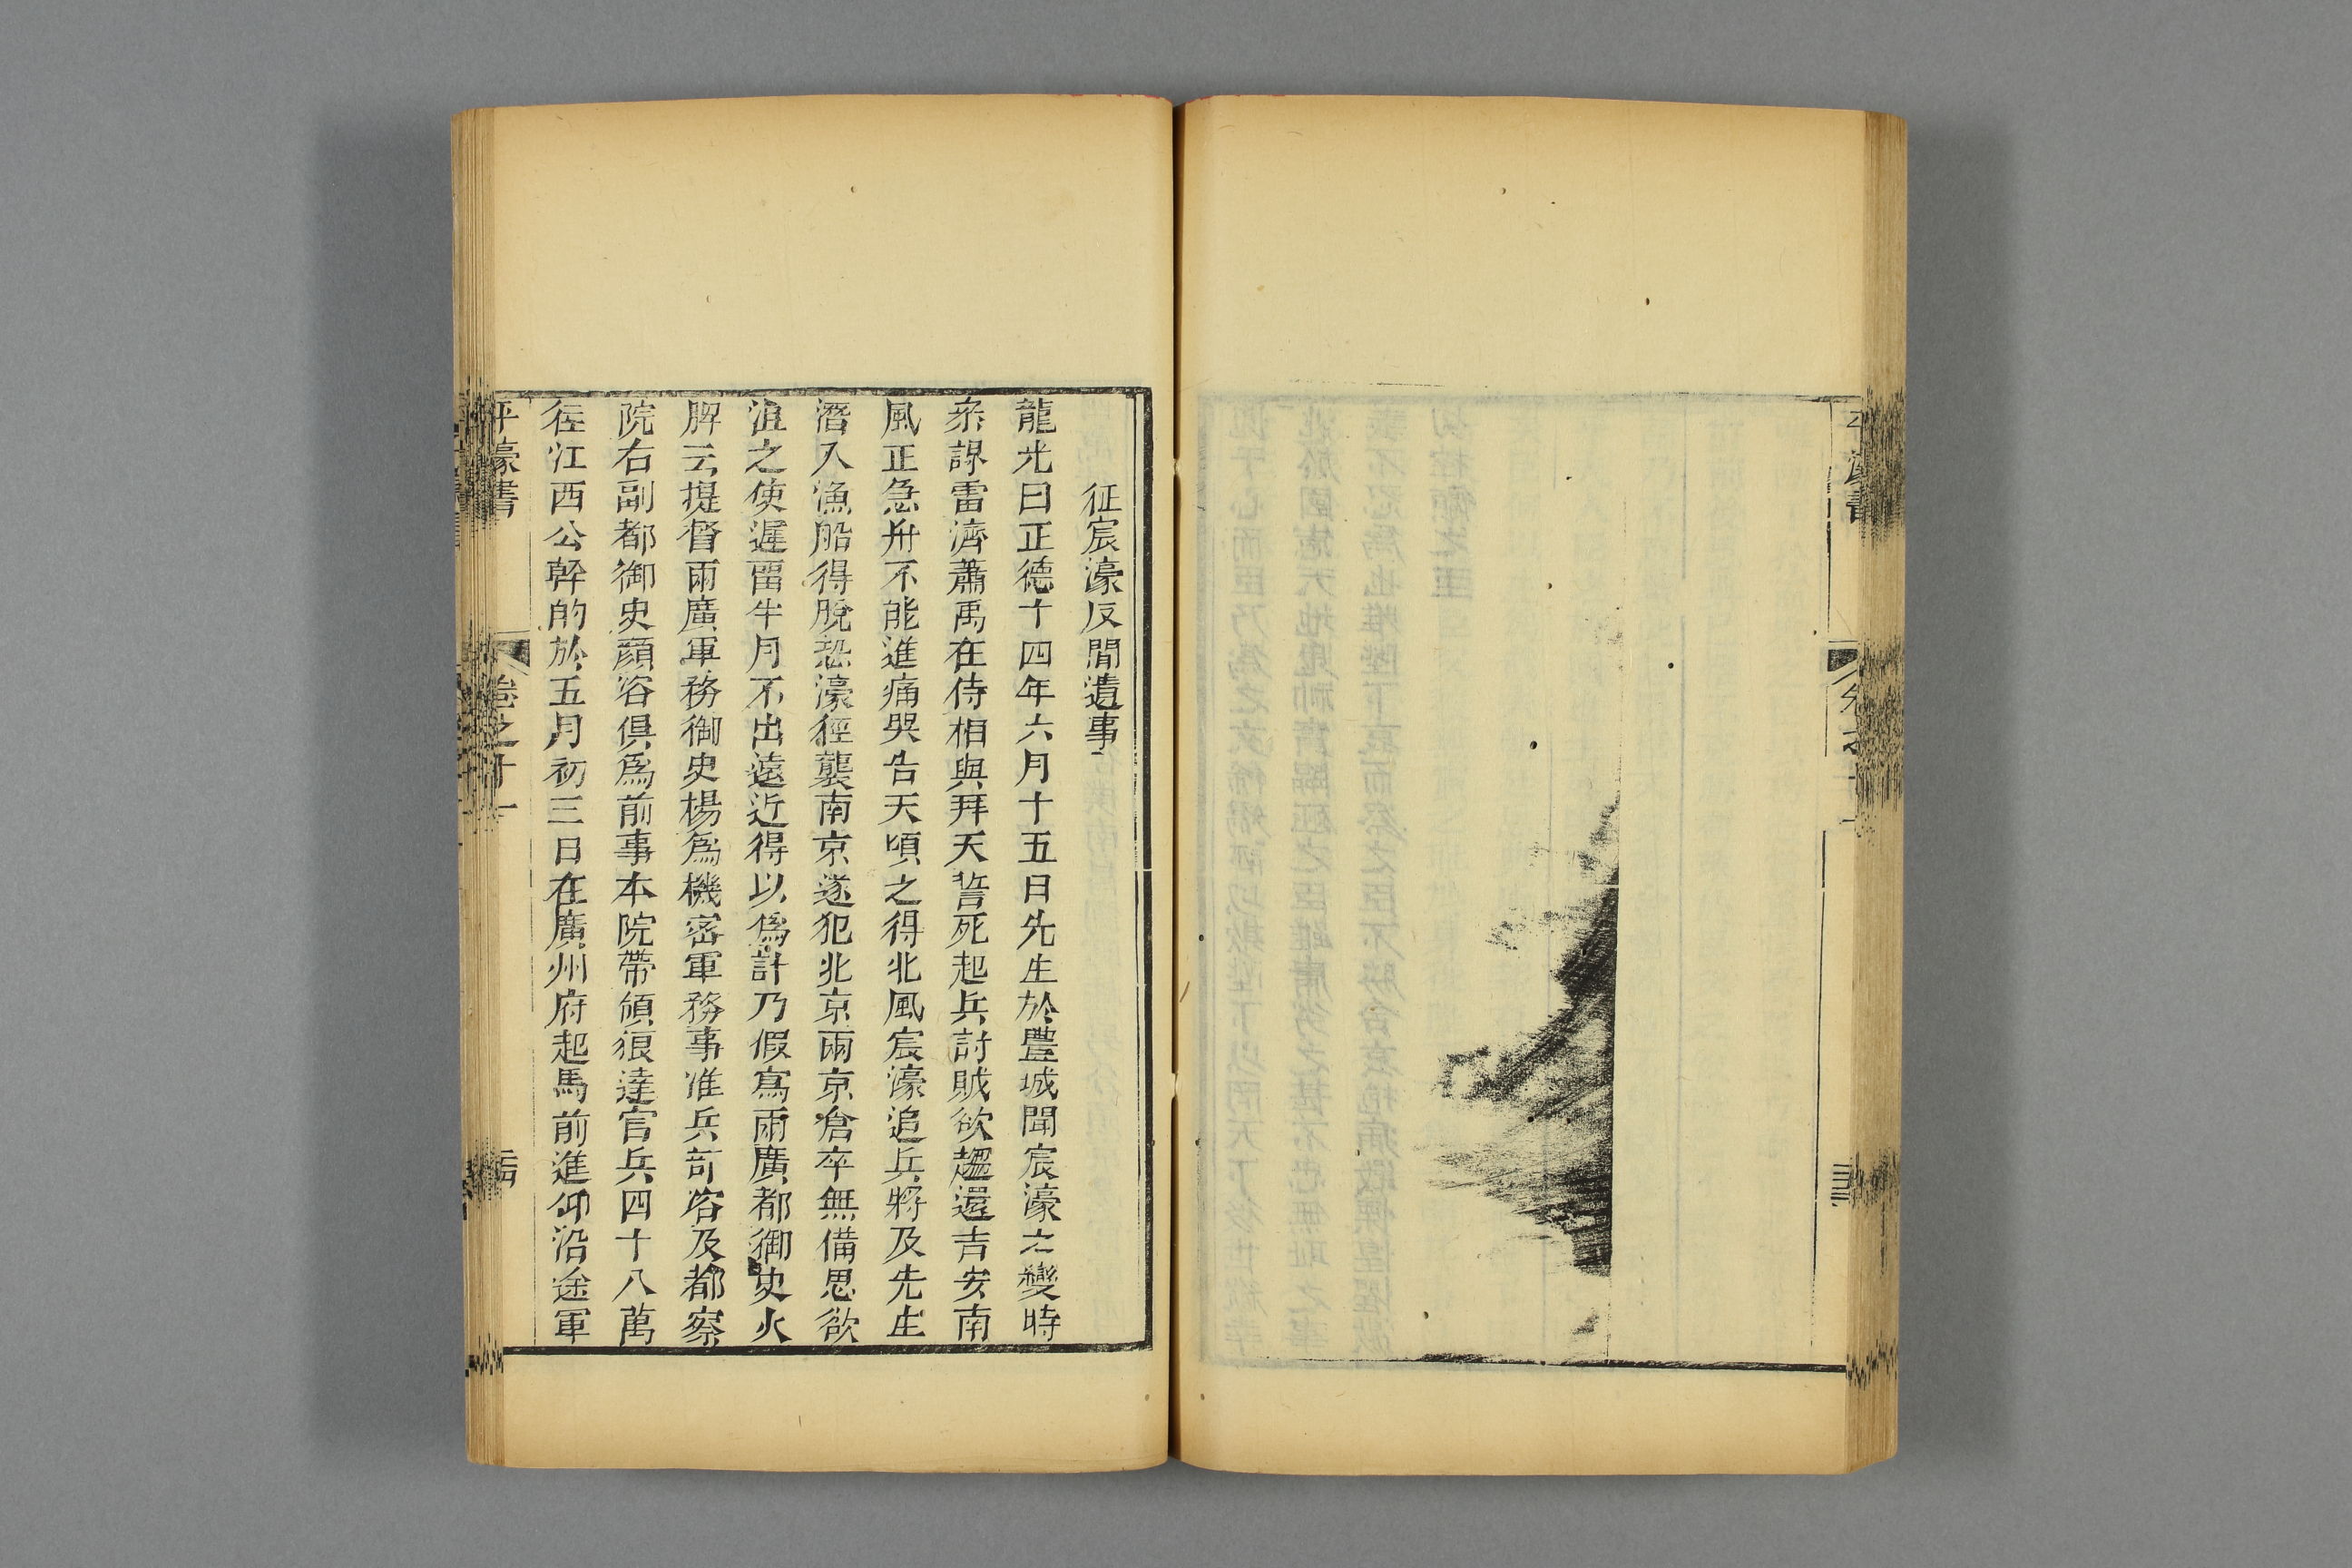 征宸濠反間遺事
龍光曰正德十四年六月十五日先生於豐城聞宸濠之變時
叅謀雷濟蕭禹在侍相與拜天誓死起兵討賊欲趨還吉安南
風正急舟不能進痛哭告天頃之得北風宸濠追兵將及先生
潛入漁船得脫恐濠徑襲南京遂犯北京兩京倉卒無備思欲
沮之使遲留半月不出遠近得以為計乃假寫兩廣都御史火
牌云提督兩廣軍務御史楊爲機密軍務事准兵部咨及都察
院右副都御史顏咨俱爲前事本院帶領狼達官兵四十八萬
徃江西公幹的於五月初三日在廣州府起馬前進仰沿途軍
平濠書
卷之十一